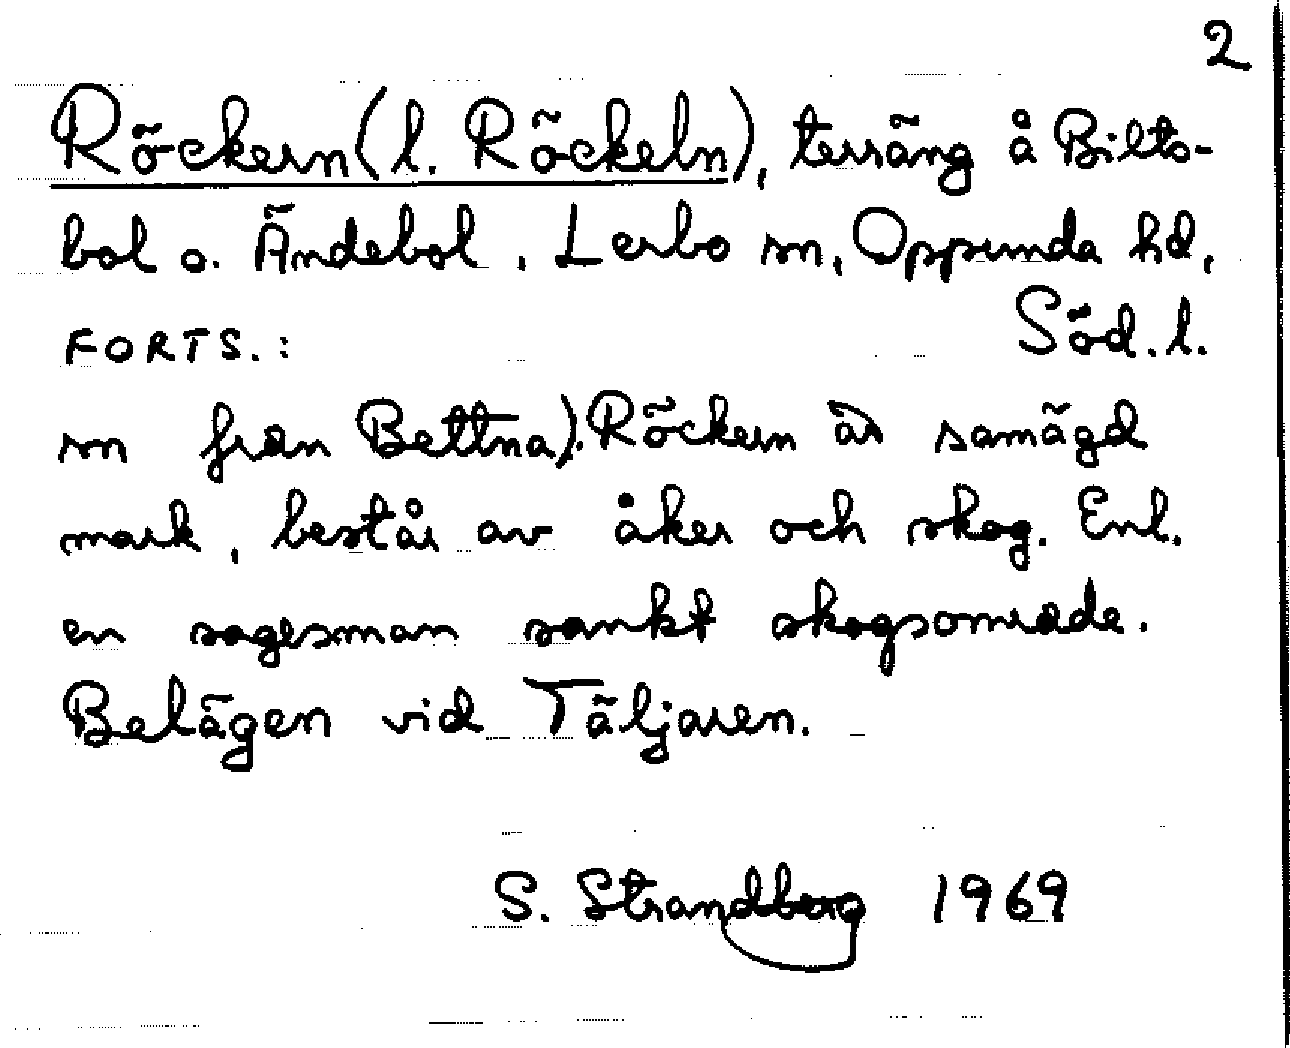 2
Röckern (l. Röckeln), terräng å Bilts-
bol o. Ändebol, Lerbo sn, Oppunda hd,
Söd. l.
FORTS. :
sn från Bettna). Röckern är samägd
mark, består av åker och skog. Enl.
en sagesman sankt skogsområde.
Belägen vid Täljaren.
S. Strandberg 1969